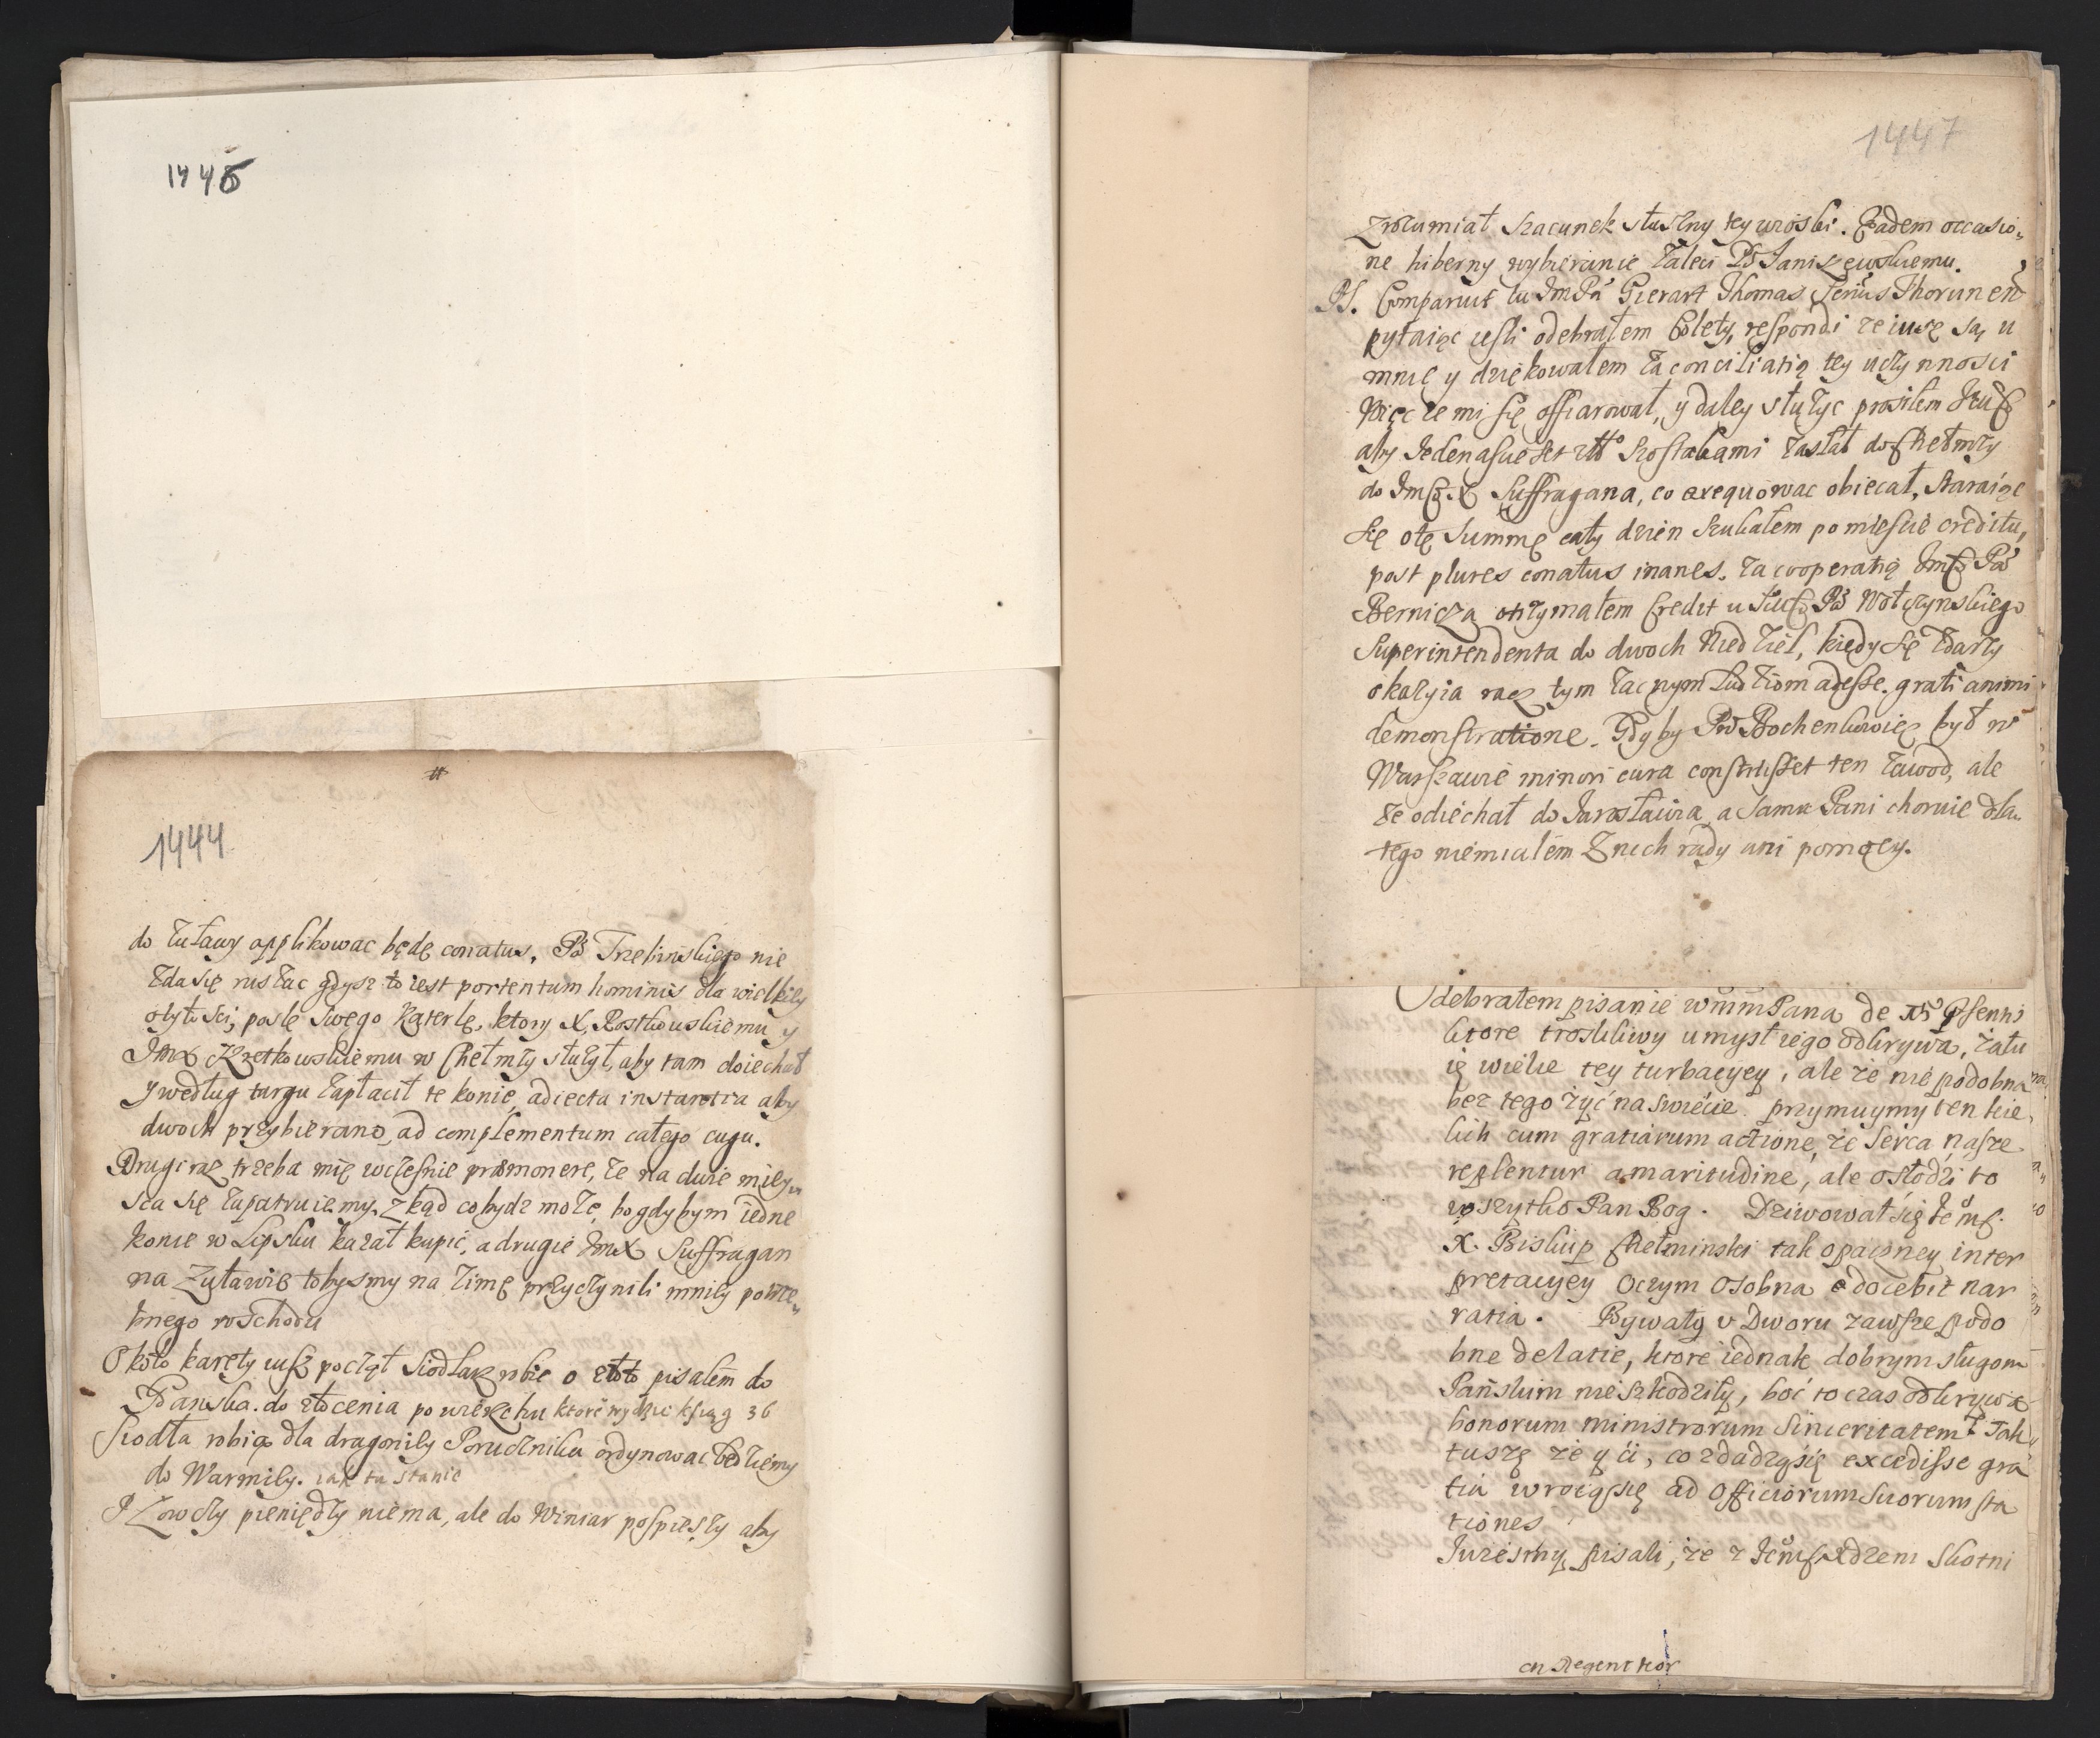 1446
1444
do Żuławy applikowac będę conatus, Pã Trzebinskiego nie
zda się ruszac gdysz to iest portentum hominis dla wielkiey
otyłości, poslę swego Katerlę, ktory X. Rostkowskiemu y
JmX Kretkowskiemu w Chełmży służył, aby tam doiechał
y według targu zapłacił te konie, adiecta instantia aby
dwoch przybierano, ad complementum całego cugu.
Drugi raz trzeba mię wczesnie præmonere, że na dwie miey„
sca się zapatruiemy, zkąd co bydz może, bo gdybym iedne
konie w Lipsku kazał kupic, a drugie JmX Suffragan
na Zuławie to bysmy na zimę przyczynili mniey potrze„
bnego roschodu
Około karety iusz początˈ Siodlarz robic o złoto pisałem do
Gdanska. do złocenia po wierzchu ktore wydzie ksiąg 36
Siodła robią dla dragoniey Porucznika ordynowac będziemy
do Warmiey. iak tu stanie
P Zawoły pieniędzy niema, ale do Winiar pospieszy aby
1447
zrozumiał szacunek słuszny tey wioski. Eadem occasio„
ne hiberny wybieranie zaleci Pã Janiszewskiemu.
PS. Comparuit tu JmPã Gierart Thomas Senius Thorunen
pytaiąc iesli odebrałem Kolety, respondi ze iusz są u
mnie y dziękowałem za conciliatią tey uczynnosci
Więc ze mi się offiarował, y daley służyc prosiłem
aby Jedenascie set złł szostakami zasłał do Chełmży
do X Suffragana, co exequowac obiecał, Staraiąc
się o tę Summę cały dzien szukałem po miescie creditu,
post plures conatus inanes. za cooperatią Pã
Bernicza otrzymałem Credit u Pã Wołczynskiego
Superintendenta do dwoch Niedziel, kiedy się zdarzy
okazyia racz tym zacnym Ludziom adesse. grati animi
demonstratione. Gdyby Pã Bochenkowic był w
Warszawie minori cura constitisset ten zawod, ale
że odiechał do Jarosławia a sama Pani choruie dla„
tego niemiałem z nich rady ani pomocy.
Odebrałem pisanie wmmPana de 15
ktore troskliwy umysł iego odkrywa, żału
ię wielce tey turbacyey, ale że nie podobna
bez tego żyć na swiecie. przymuymy ten kie„
lich cum gratiarum actione, że serca nasze
replentur amaritudine, ale osłodzi to
wszytko Pan Bog. Dziwował się
X. Biskup Chełminski tak opaczney inter
pretacyey oczym osobna edocebit nar
ratia. Bywały u Dworu zawsze podo
bne delatie, ktore iednak dobrym sługom
Pańskim nie szkodziły, boć to czas odkrywa
bonorum ministrorum sinceritatem. Tak
tuszę że y ci, co zdadzą się excedisse gra
tia wrocą się ad Officiorum suorum sta
tiones
Juzesmy pisali, że z Xdzem Skotni